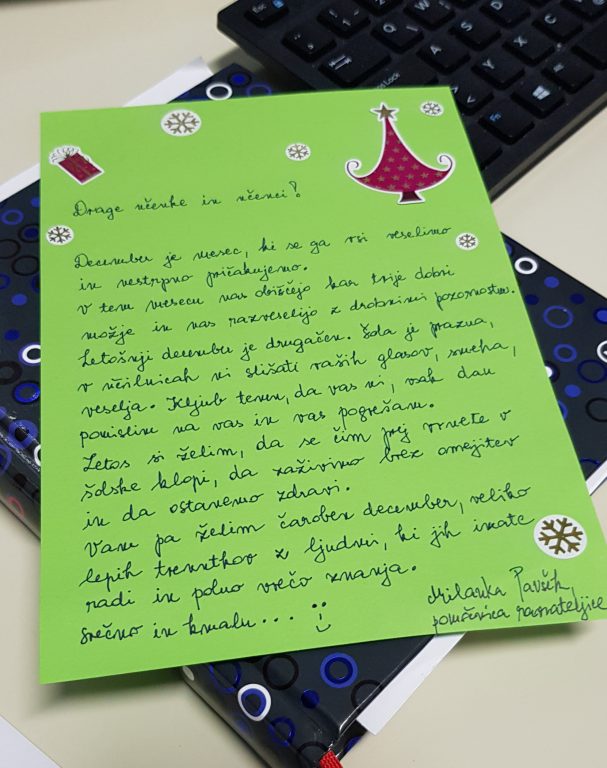 Esc
Q
W
A
S
D
Y
X
C
Fn
Drage učenke in učenci!
December je mesec, ki se ga vsi veselimo
in nestrpno pričakujemo.
V tem mesecu nas obiščejo kar trije dobri
možje in nas razveselijo z drobnimi pozornostmi.
Letošnji december je drugačen. Šola je prazna,
v učilnicah ni slišati vaših glasov, smeha,
veselja. Kljub temu, da vas ni, vsak dan
pomislim na vas in vas pogrešam.
Letos si želim, da se čim prej vrnete v
šolske klopi, da zaživimo brez omejitev
in da ostanemo zdravi.
Vam pa želim čaroben december, veliko
lepih trenutkov z ljudmi, ki jih imate
radi in polno vrečo znanja.
Srečno in kmalu... :)
Milanka Pavšek,
pomočnica ravnateljice